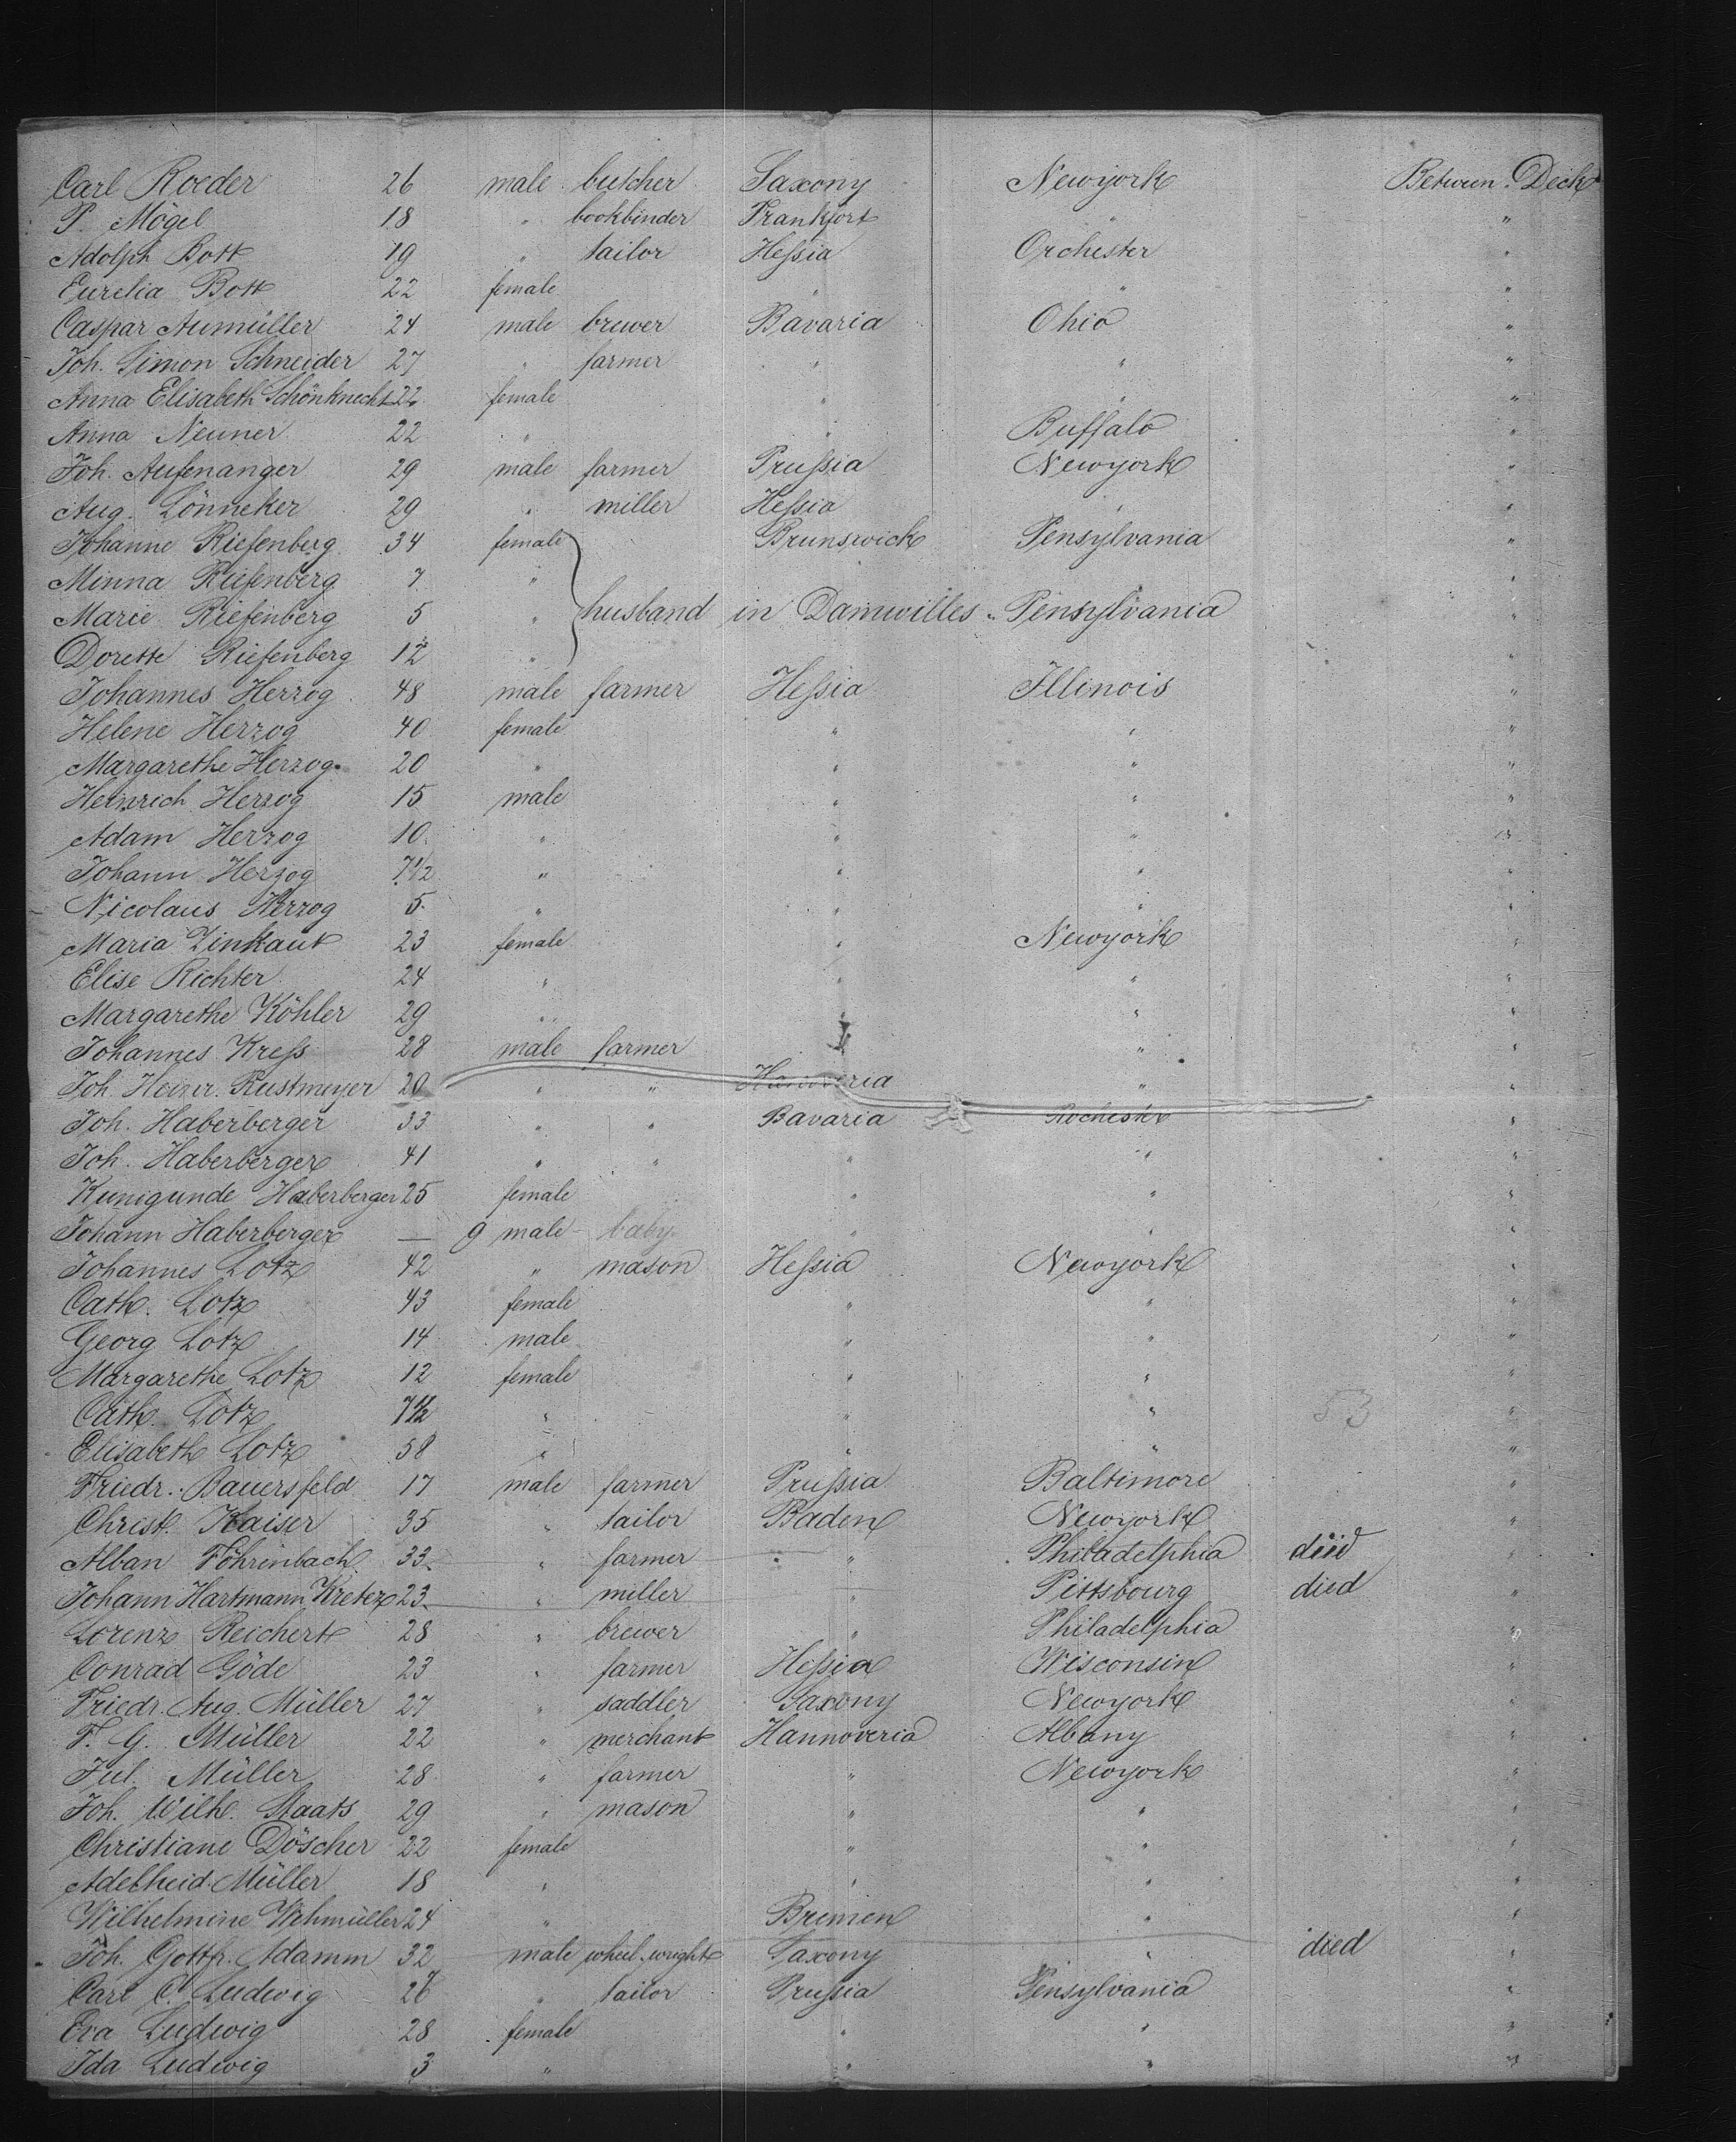 Carl Roeder 26 male butcher Saxony Newyork Between Deck
P. Mögel 18 " bookbinder Frankfort " "
Adolph Bott 19 " tailor Heſsia Orchester "
Eurelia Bott 22 female " " "
Caspar Aumüller 24 male brewer Bavaria Ohio "
Joh. Simon Schneider 27 " farmer " " "
Anna Elisabeth Schönknecht 22 female " " "
Anna Neuner 22 " " Buffalo "
Joh. Aufenanger 29 male farmer Pruſsia Newyork "
Aug. Lönneker 29 " miller Heſsia " "
Johanne Riefenberg 34 female Brunswick Pensylvania "
Minna Riefenberg 7 " "
Marie Riefenberg 5 " husband in Damwilles Pensylvania "
Dorette Riefenberg 1½ " "
Johannes Herzog 48 male farmer Heſsia Illinois "
Helene Herzog 40 female " " "
Margarethe Herzog 20 " " " "
Heinrich Herzog 15 male " " "
Adam Herzog 10 " " " "
Johann Herzog 7½ " " " "
Nicolaus Herzog 5 " " " "
Maria Zinkaut 23 female " Newyork "
Elise Richter 24 " " " "
Margarethe Köhler 29 " " " "
Johannes Kreſs 28 male farmer " " "
Joh. Heinr. Rustmeyer 20 " " Hannoveria " "
Joh. Haberberger 33 " " Bavaria Rochester "
Joh. Haberberger 41 " " " " "
Kunigunde Haberberger 25 female " " "
Johann Haberberger — 9 male baby " " "
Johannes Lotz 42 " mason Heſsia Newyork "
Cath. Lotz 43 female " " "
Georg Lotz 14 male " " "
Margarethe Lotz 12 female " " "
Cath. Lotz 7½ " " " 53 "
Elisabeth Lotz 58 " " " "
Friedr. Bauersfeld 17 male farmer Pruſsia Baltimore "
Christ. Kaiser 35 " tailor Baden Newyork "
Alban Föhrenbach 33 " farmer " Philadelphia died "
Johann Hartmann Kretez 23 " miller " Pittsbourg died "
Lorenz Reichert 28 " brewer " Philadelphia "
Conrad Göde 23 " farmer Heſsia Wisconsin "
Friedr. Aug. Müller 27 " saddler Saxony Newyork "
F. G. Müller 22 " merchant Hannoveria Albany "
Jul. Müller 28 " farmer " Newyork "
Joh. Wilh. Staats 29 " mason " " "
Christiane Döscher 22 female " " "
Adelheid Müller 18 " " " "
Wilhelmine Wehmüller 24 " Bremen " "
Joh. Gottfr. Adamm 32 male wheel-wright Saxony " died "
Carl C. Ludwig 26 " tailor Pruſsia Pensylvania "
Eva Ludwig 28 female " " "
Ida Ludwig 3 " " " "